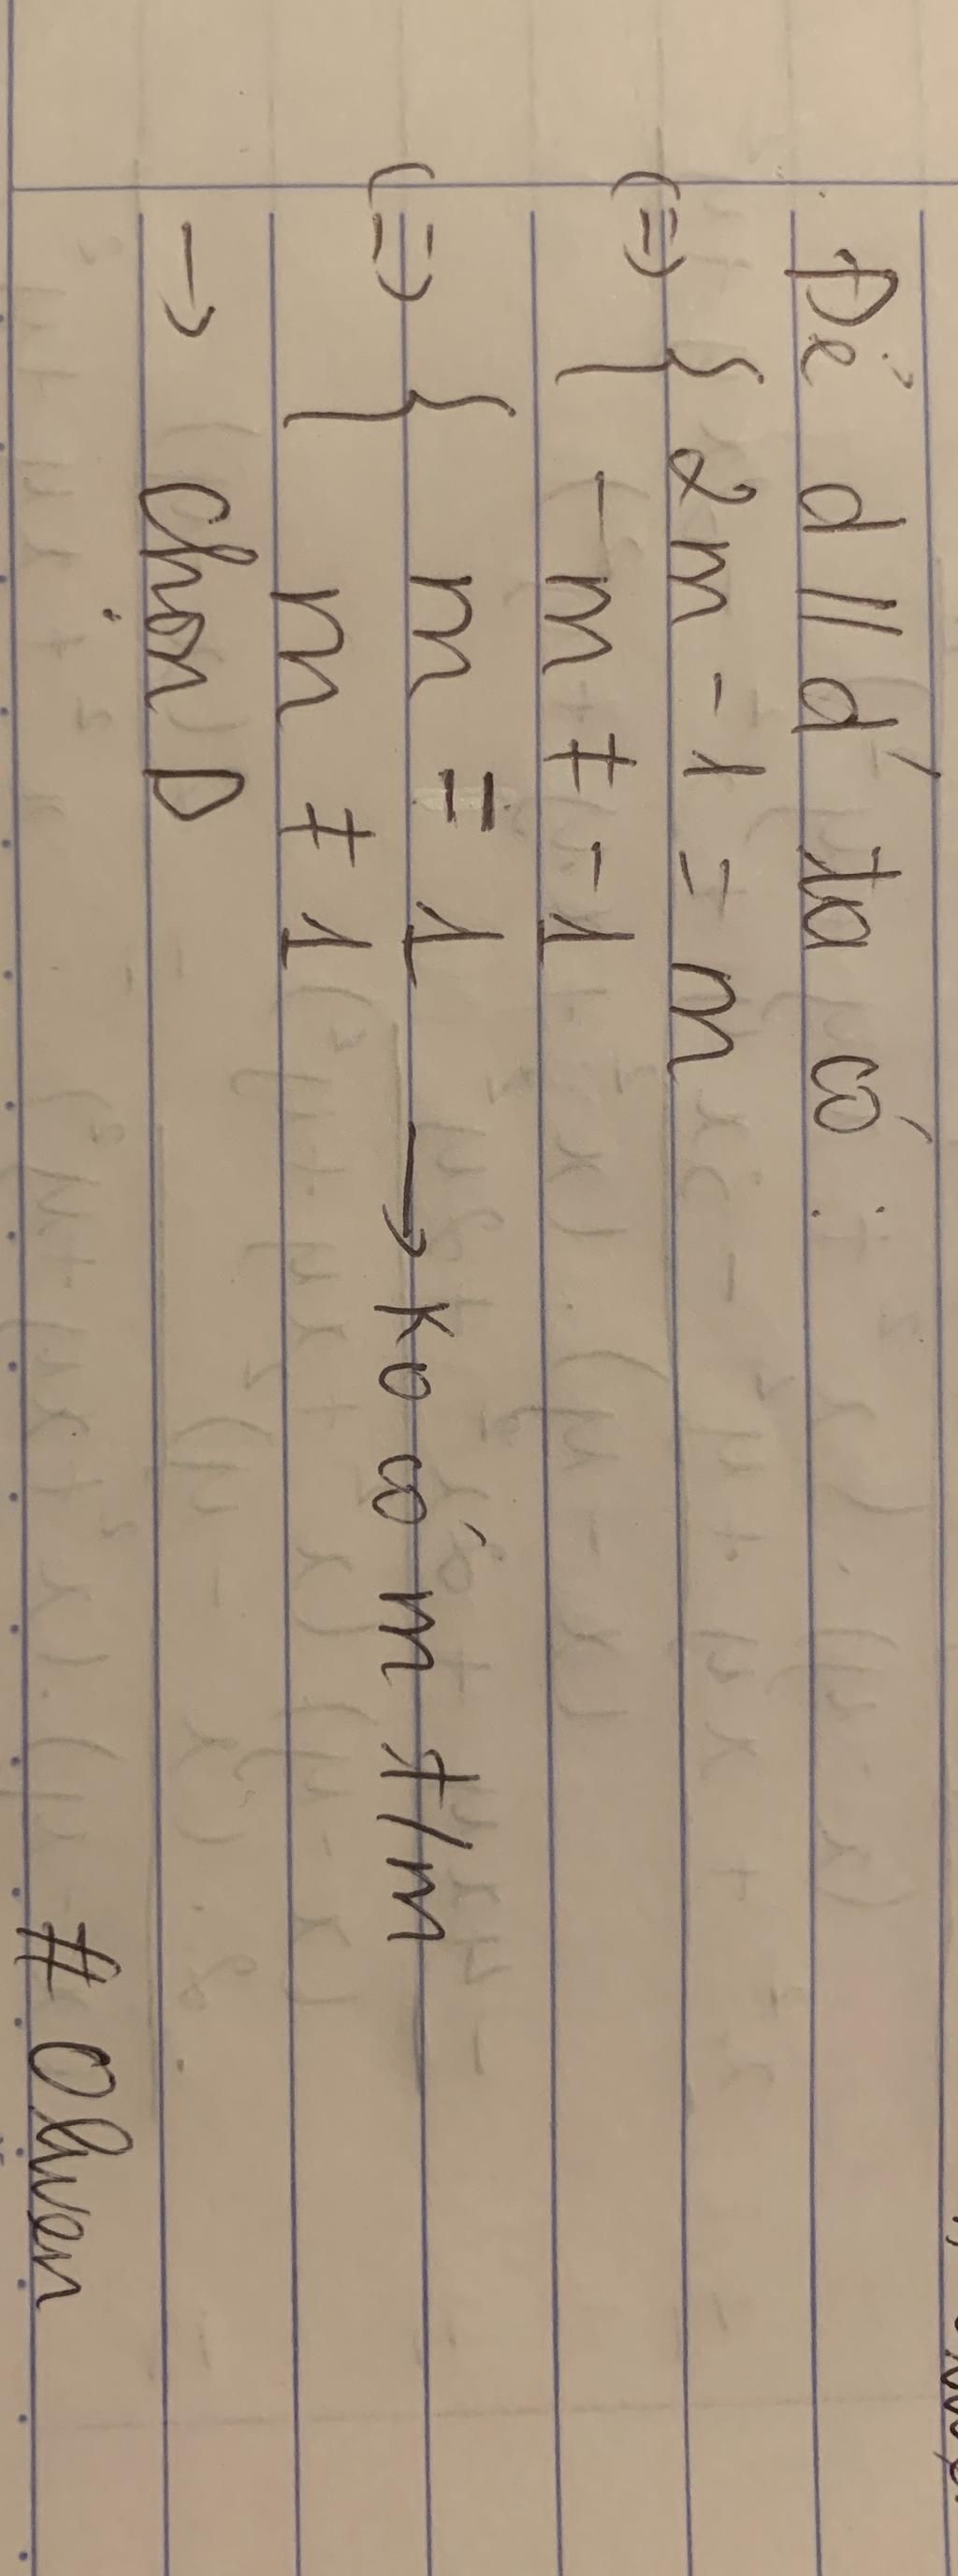 Để d // d' ta có :
(=) { 2m - 1 = m
- m ≠ - 1
(=) { m = 1
m ≠ 1 → ko có m t/m
→ Chọn D
# Olwen